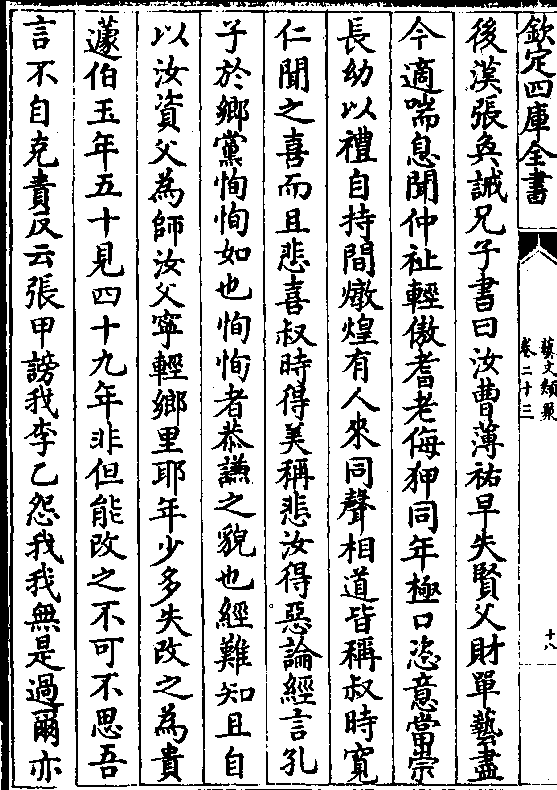 欽定四庫全書
藝文類聚
卷二十三
十八
後漢張奐誡兄子書曰汝曹薄祐早失賢父財單藝盡
今適喘息聞仲祉輕傲耆老侮狎同年極口恣意當崇
長幼以禮自持聞燉煌有人來同聲相道皆稱叔時寛
仁聞之喜而且悲喜叔時得美稱悲汝得惡論經言孔
子於鄉黨恂恂如也恂恂者恭謙之貌也經難知且自
以汝資父為師汝父寧輕鄉里耶年少多失改之為貴
蘧伯玉年五十見四十九年非但能改之不可不思吾
言不自克責反云張甲謗我李乙怨我我無是過爾亦